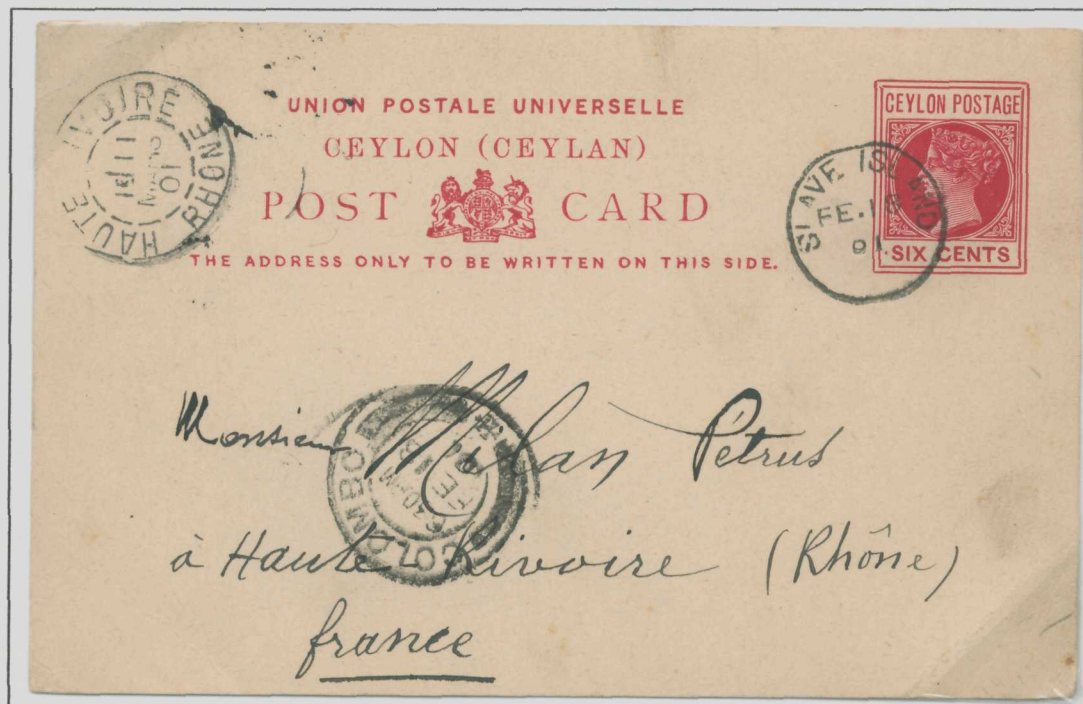 UNION POSTALE UNIVERSELLE
CEYLON (CEYLAN)
POST CARD
THE ADDRESS ONLY TO BE WRITTEN ON THIS SIDE.
CEYLON POSTAGE
SIX CENTS
SLAVE ISLAND
FE. 18
HAUTE IVOIRE
RHONE
11
2
MARS
01
COLOMBO
Monsieur Milan Pétrus
à Haute Rivoire (Rhône)
france